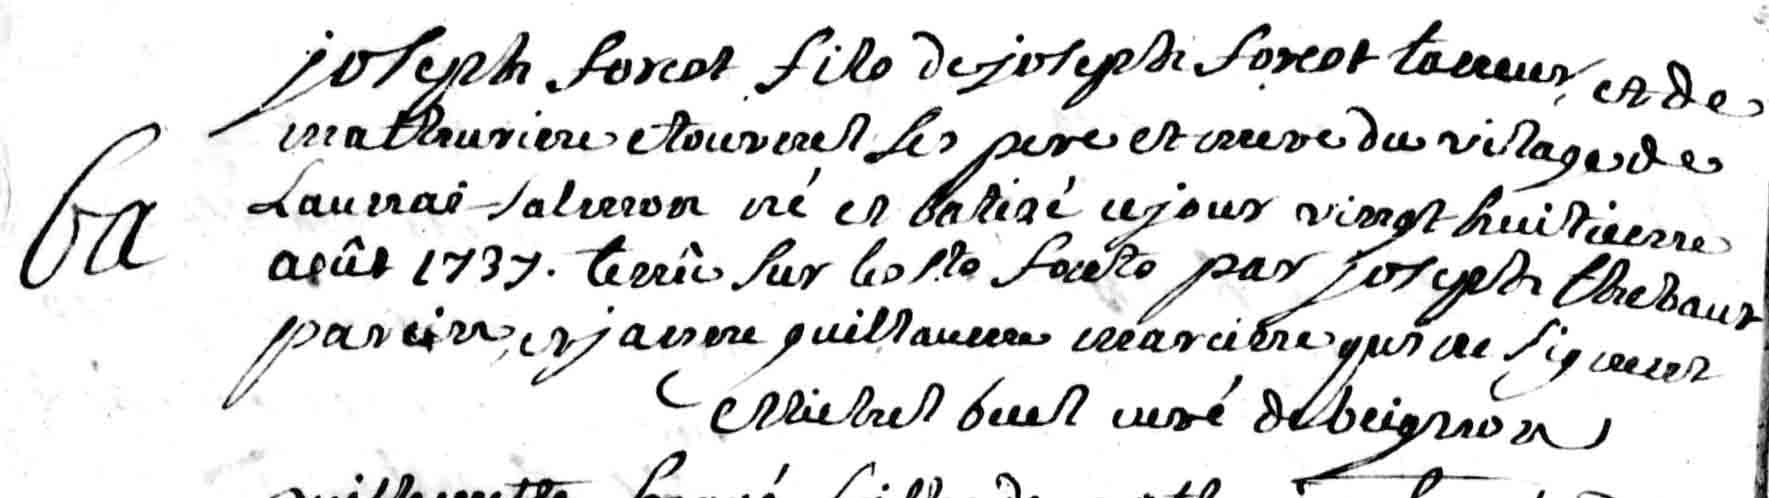 joseph foret fils de joseph foret taneur, et de
mathurine chouvrel ses pere et mere du village de
Launai salmon né et batizé ce jour vingt huitieme
ba
août 1737. tenû sur les sts fonts par joseph thebaut
parein, et janne guillaume mareine qui ne signent
Michel buel curé de beignon
guillemette fille de